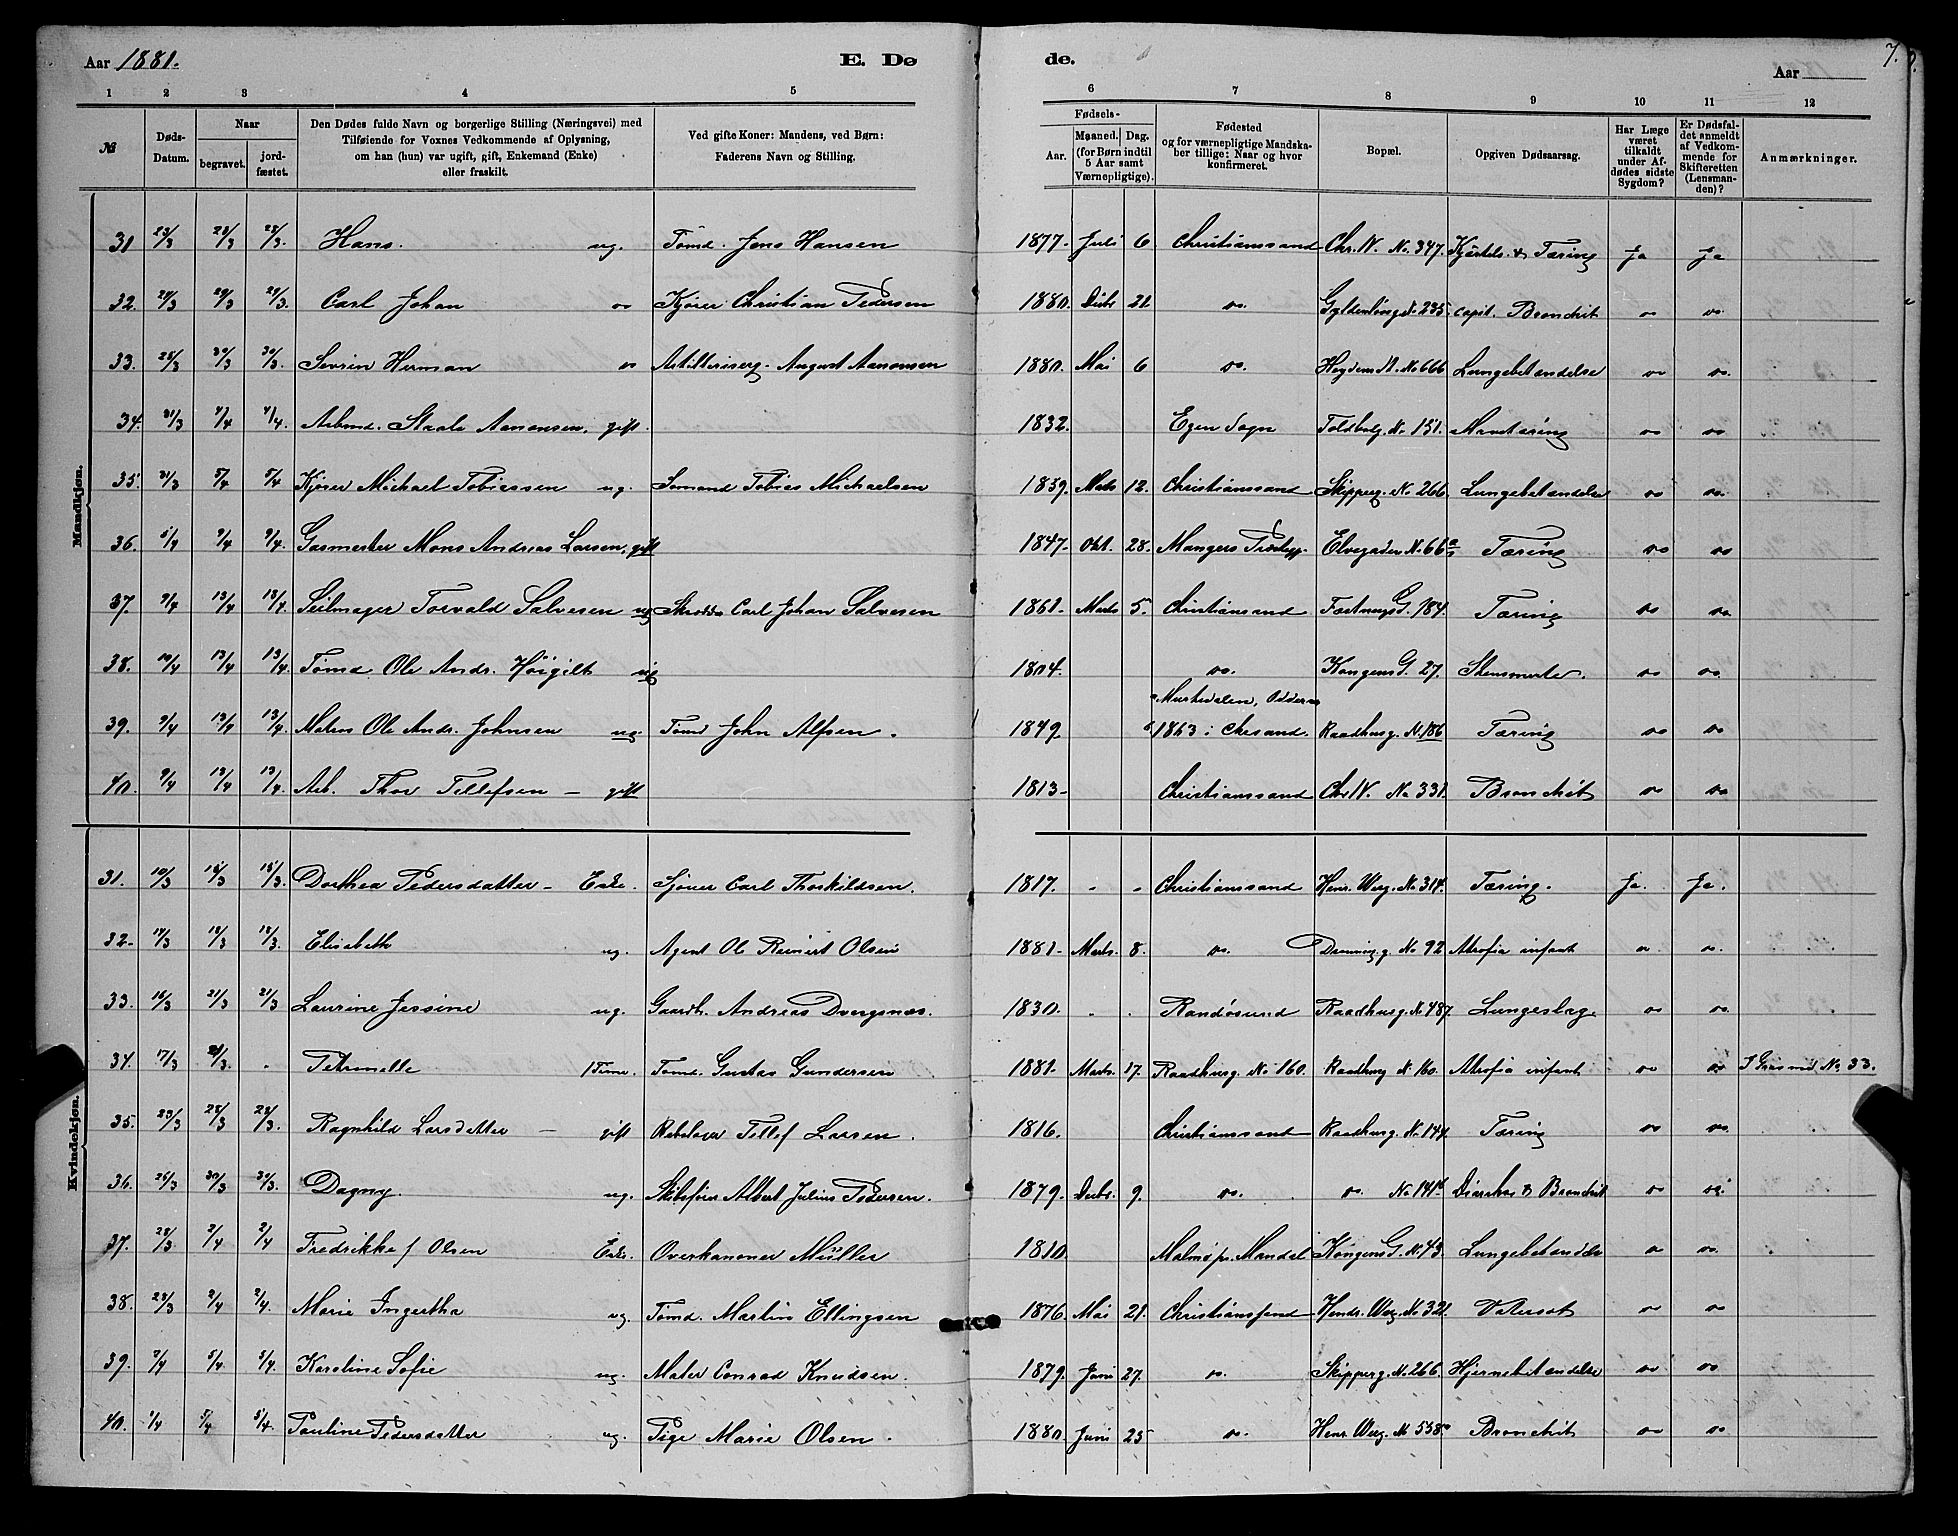 Aar 1881.
E. Dø
de.
7.
Aar
1 2 3 4 5
6 7 8 9 10 11 12
№
Døds-Datum.
Naar
begravet.
jord-fæstet.
Den Dødes fulde Navn og borgerlige Stilling (Næringsvei) med
Tilføiende for Voxnes Vedkommende af Oplysning,
om han (hun) var ugift, gift, Enkemand (Enke)
eller fraskilt.
Ved gifte Koner: Mandens, ved Børn:
Faderens Navn og Stilling.
Fødsels-
Aar.
Maaned. Dag.
(for Børn indtil
5 Aar samt
Værnepligtige).
Fødested
og for værnepligtige Mandska-
ber tillige: Naar og hvor
konfirmeret.
Bopæl.
Opgiven Dødsaarsag.
Har Læge
været
tilkaldt
under Af-
dødes sidste
Sygdom?
Er Dødsfal-
det anmeldt
af Vedkom-
mende for
Skifteretten
(Lensman-
den)?
Anmærkninger.
Mandkjøn.
31 23/3 28/3 28/3. Hans. ug. Tømd. Jens Hansen 1877. Juli 6 Christianssand Chr. IV. No. 347. Kjertels. & Tæring Ja Ja
32. 29/3 29/3. Carl Johan " Kjører Christian Pedersen 1880. Decbr 21. " No. 235. capil. Bronchit " "
33. 25/3 30/3 30/3. Sevrin Herman " August Aanonsen 1880. Mai 6 " No 666 Lungebetændelse " "
34. 31/3 4/4 4/4. Arbmd. Staale Aanonsen. gift. 1832. Egen Sogn Toldbodg. No 151. " "
35. 31/3 5/4 5/4 Kjører Michael Tobiassen ug. Sømand Tobias Michaelsen 1859. Marts 12. Christianssand Skipperg. No 266 Lungebetændelse " "
36. 5/4 9/4 9/4. Gasmester Mons Andreas Larsen, gift 1847. Okt. 28. Mangers Elvegaden No. 66 Tæring " "
37. 9/4 13/4 13/4. Seilmager Torvald Salvesen ug Skrædder Carl Johan Salvesen 1861. Marts 5. Christiansand Fæstnings G. 184. Tæring " "
38. 10/4 13/4 13/4. Tømd. Ole Andr. Høigilt ug 1804. " Kongens G. 27. " "
39. 9/4 13/4 13/4. Matros Ole Andr. Johnsen ug. Tømd John Alfsen. 1849 Oddernes 1863 i Chrsand. Raadhusg. N. 186 Tæring " "
40. 9/4 13/4 13/4. Arb. Thor Tellefsen – gift 1813 – Christianssand Chr IV. No 331. Bronchit " "
Kvindekjøn.
31. 10/3 15/3 15/3. Dorthea Pedersdatter – Enke. Carl Thorkildsen. 1817. - - Christianssand Henr. Werg. No. 314. Tæring. Ja. Ja.
32. 14/3 18/3 18/3. Elisabeth ug. Agent Ole Reinert Olsen 1881. Marts. 8. " Dronning. g. No 92 Atrofia infant " "
33. 16/3 21/3 21/3 Laurine Jessine ug. Gaardb. Andreas Dvergsnæs. 1830. . . Randøsund Raadhusg. No 487. Lungeslag " "
34. 17/3 21/3. - Petronelle 1 Time. Tømd. Gustav Gundersen 1881. Marts. 17. Raadhusg. No. 160. Raadhusg N 160. Atrofia infant " " I Grav med No 33.
35. 23/3 28/3 28/3. Ragnhild Larsdatter – gift Rebslager Tellef Larsen. 1816. Christianssand Raadhusg. No 144. Tæring " "
36. 26/3 30/3 30/3. Dagny. ug. Albert Julius Pedersen. 1879. Decbr. 9. " " No 141 Diarrhoe & Bronchit " "
37. 28/3 2/4 2/4 Fredrikke f Olsen Enke. Overkanoner Müller 1810. Malmø pr. Mandal Kongens G. No. 43. Lungebetændelse " "
38. 28/3 2/4 2/4. Marie Ingertha ug. Tømd. Martin Ellingsen 1876. Mai 21. Christianssand Henr. Werg. No 321. Vatersot " "
39. 2/4 5/4. 5/4. Karoline Sofie ug. Maler Conrad Knudsen. 1879. Juni 27. " Skipperg. No. 266. Hjernebetændelse " "
40. 1/4 5/4 5/4. Pauline Pedersdatter ug. Pige Marie Olsen. 1880. Juni 25 " Henr. Werg. No 558 Bronchit " "